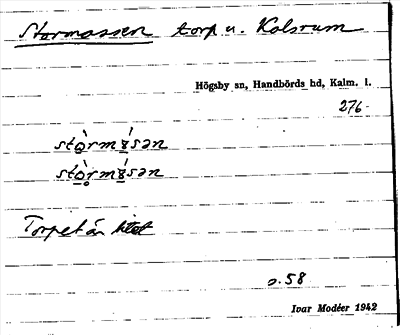 Stormossen torp u. Kolsrum
Högsby sn, Handbörds hd, Kalm. l.
276.
Torpet är litet
s. 58
Ivar Modéer 1942